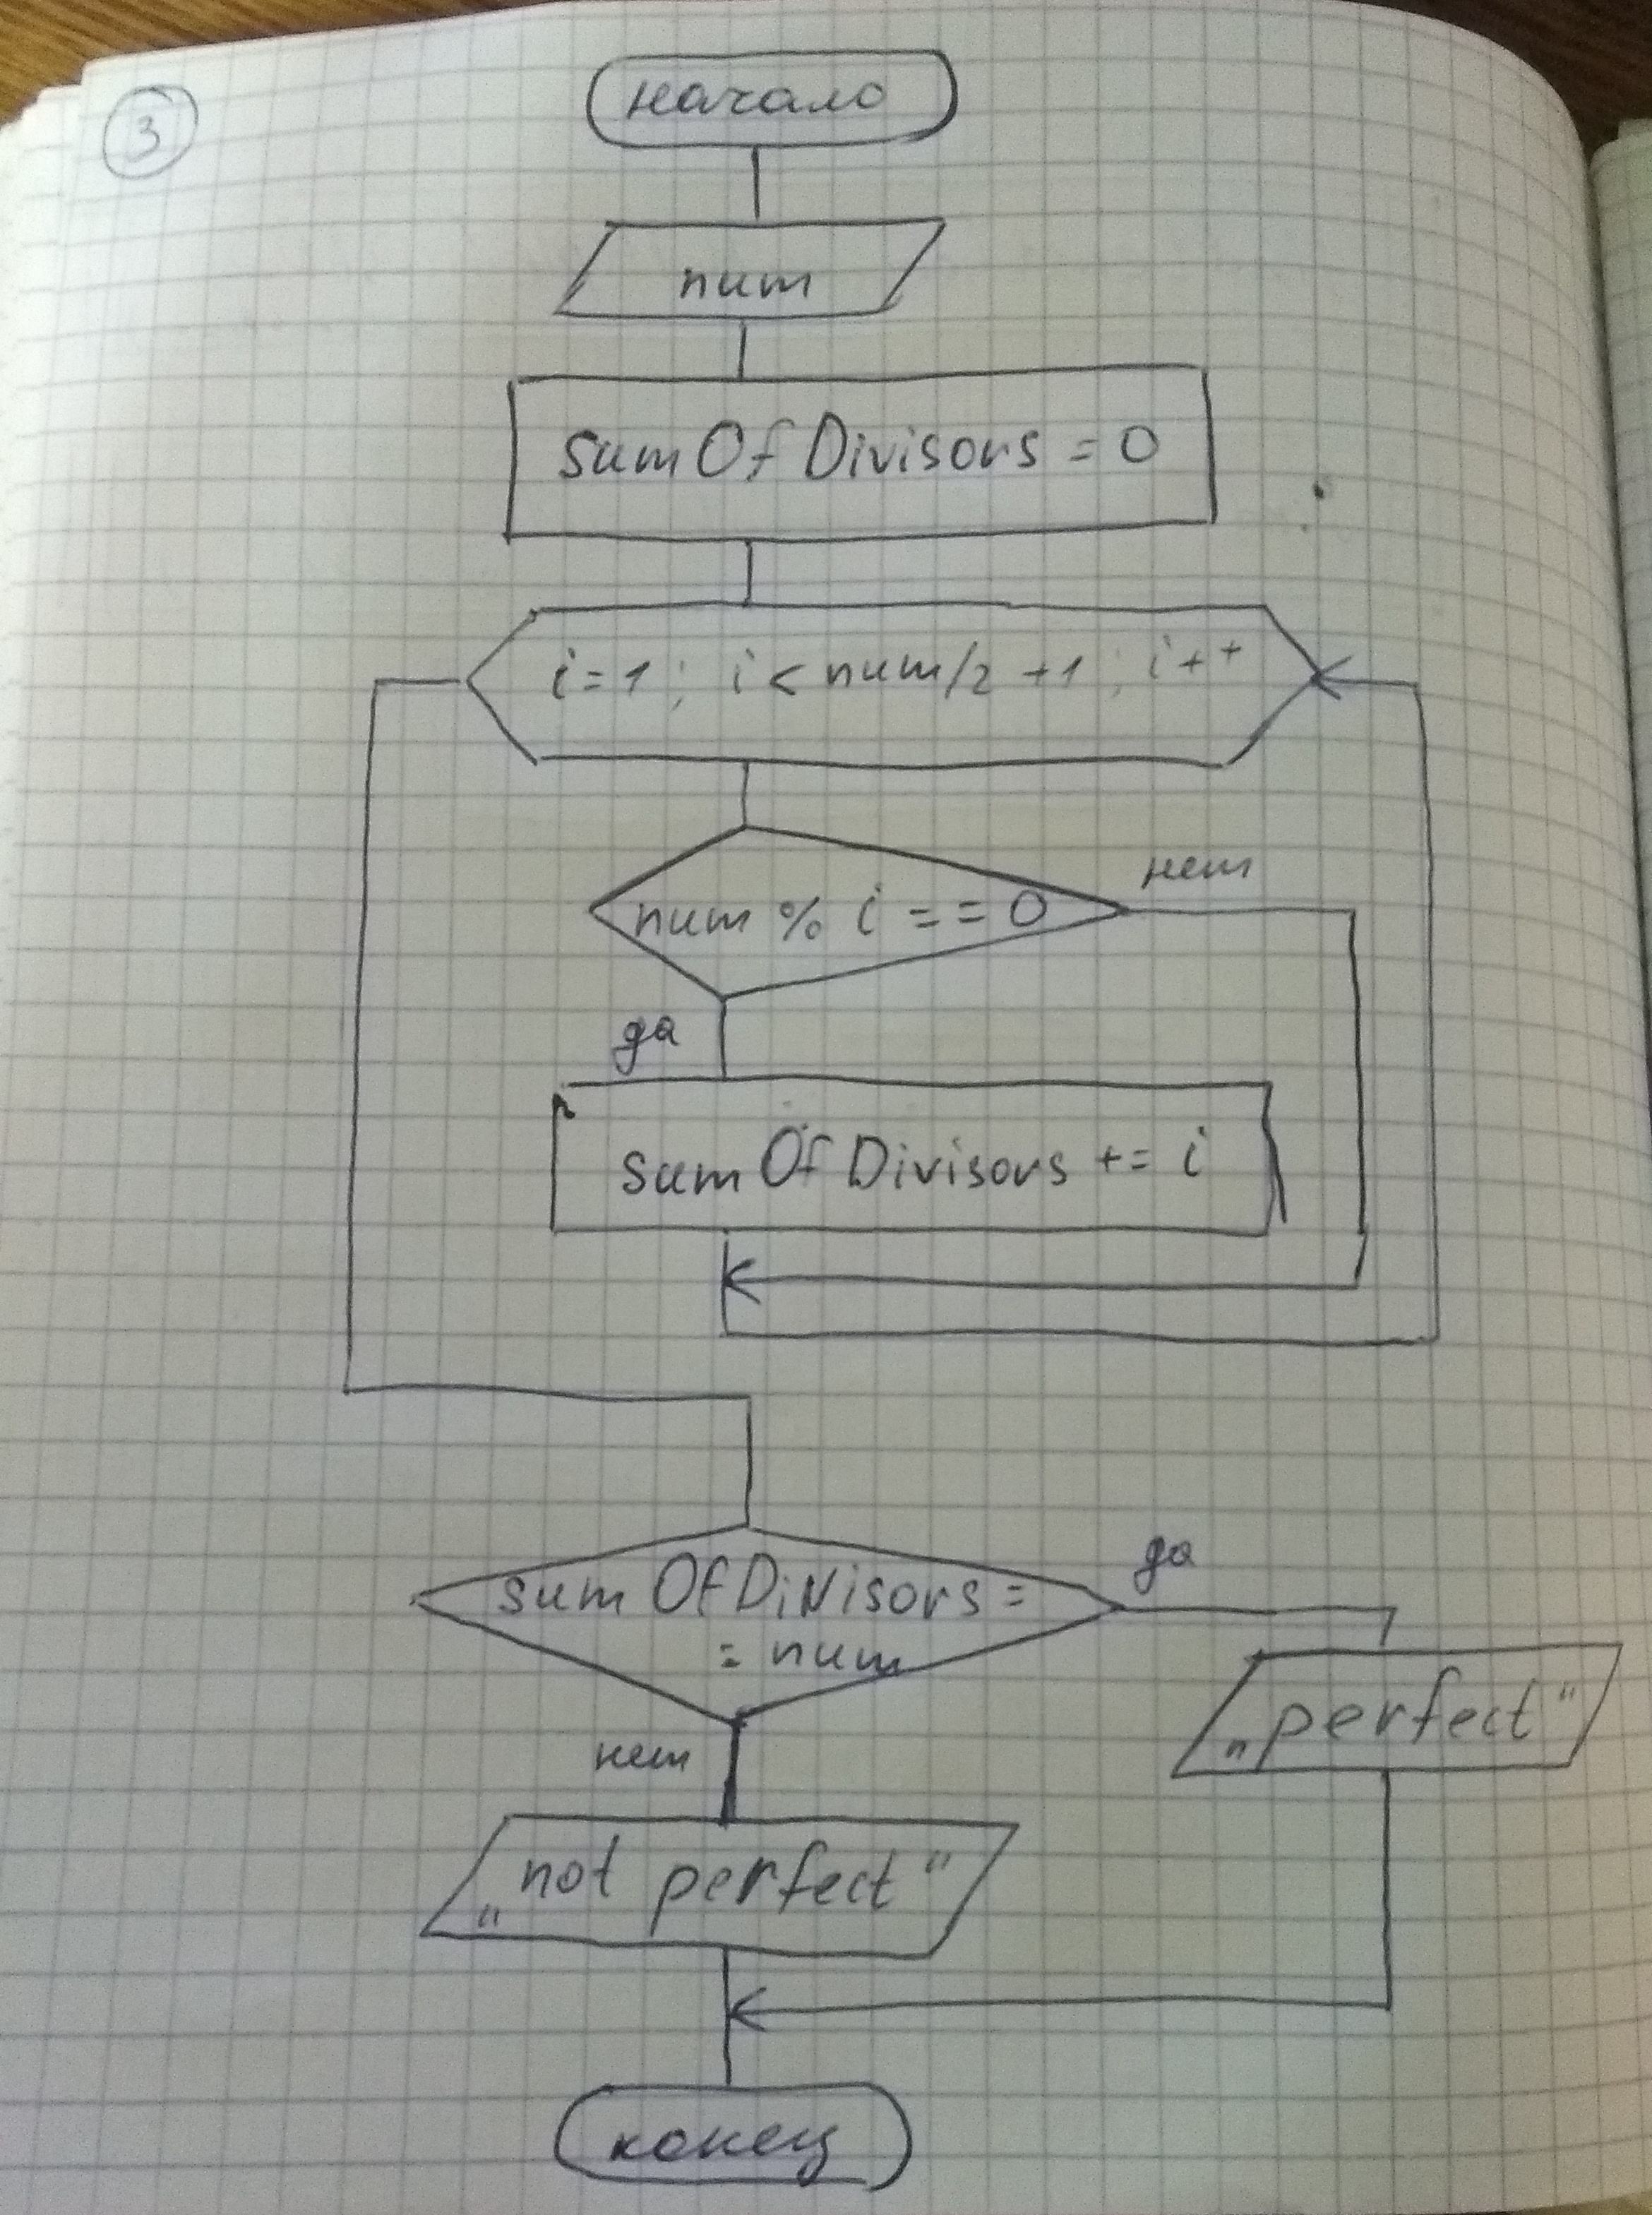 3
начало
num
sumOfDivisors = 0
i=1; i < num/2 +1; i++
num % i == 0
нет
да
sumOfDivisors += i
sumOfDivisors =
= num
да
„perfect“
нет
„not perfect“
конец